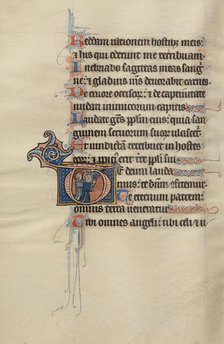 Reddam ultionem hostib; meis:
et his qui oderunt me retribuam.
Inebriabo sagittas meas sangui
ne: et gladius ms̄ devorabit carnes.
De cruore occisor: et de captivitate
nudati inimicorum capitis.
Laudate gens ppl̄m eius: quia san
guinem servorum suor ulciscet̄
Et vindictam retribuet in hostes
eor: et ppicius erit t̄re ppl̄i sui.
Te deum lauda
mus: te dn̄m confitemur
Te eternum patrem:
omnis terra veneratur
Tibi omnes angeli: tibi celi et u